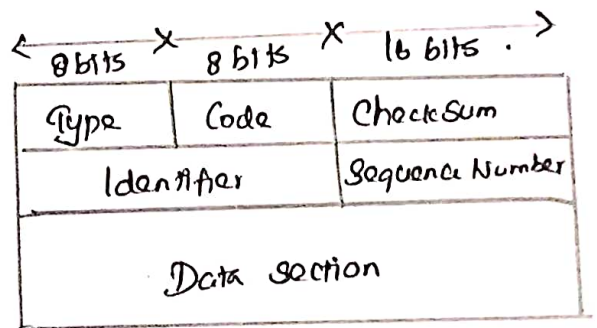 8 bits 8 bits 16 bits.
Type Code CheckSum
Identifier Sequence Number
Data section